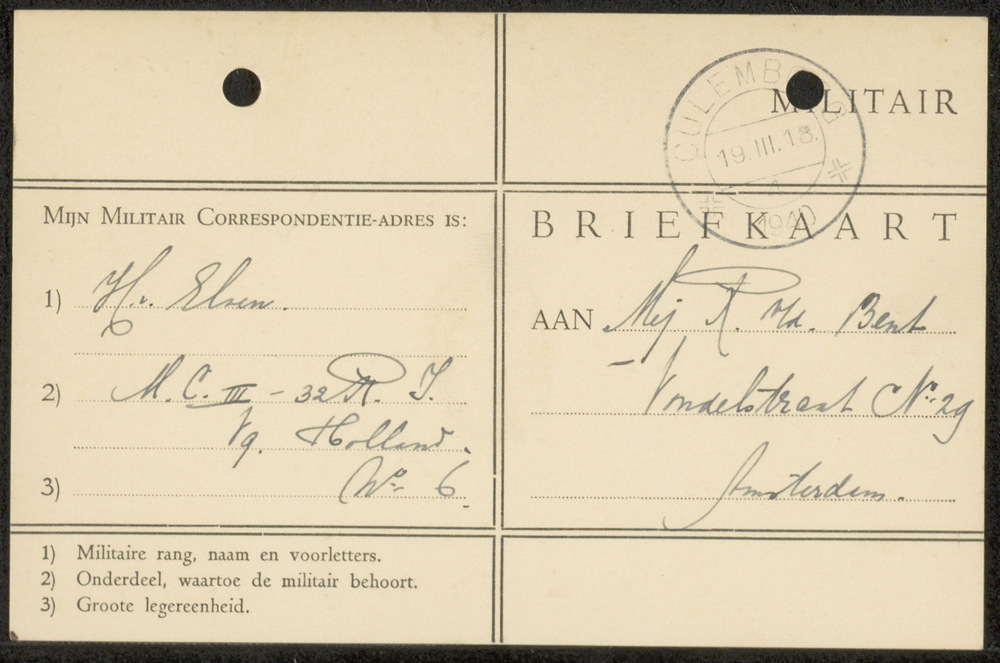 MILITAIR
CULEMBORG
19.III.18.
1940
MIJN MILITAIR CORRESPONDENTIE-ADRES IS:
1) H. Elsen.
2) M. C. III - 32 R. I.
Vg. Holland.
3) No. 6
1) Militaire rang, naam en voorletters.
2) Onderdeel, waartoe de militair behoort.
3) Groote legereenheid.
BRIEFKAART
AAN Mej R. v/d. Bent
Vondelstraat No. 29
Amsterdam.